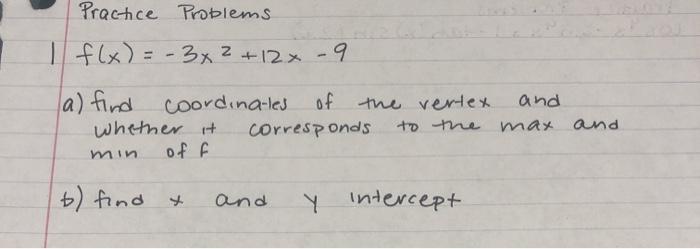 Practice Problems
1 f(x) = -3x² +12x -9
a) find coordinates of the vertex and
whether it corresponds to the max and
min of f
b) find x and y intercept